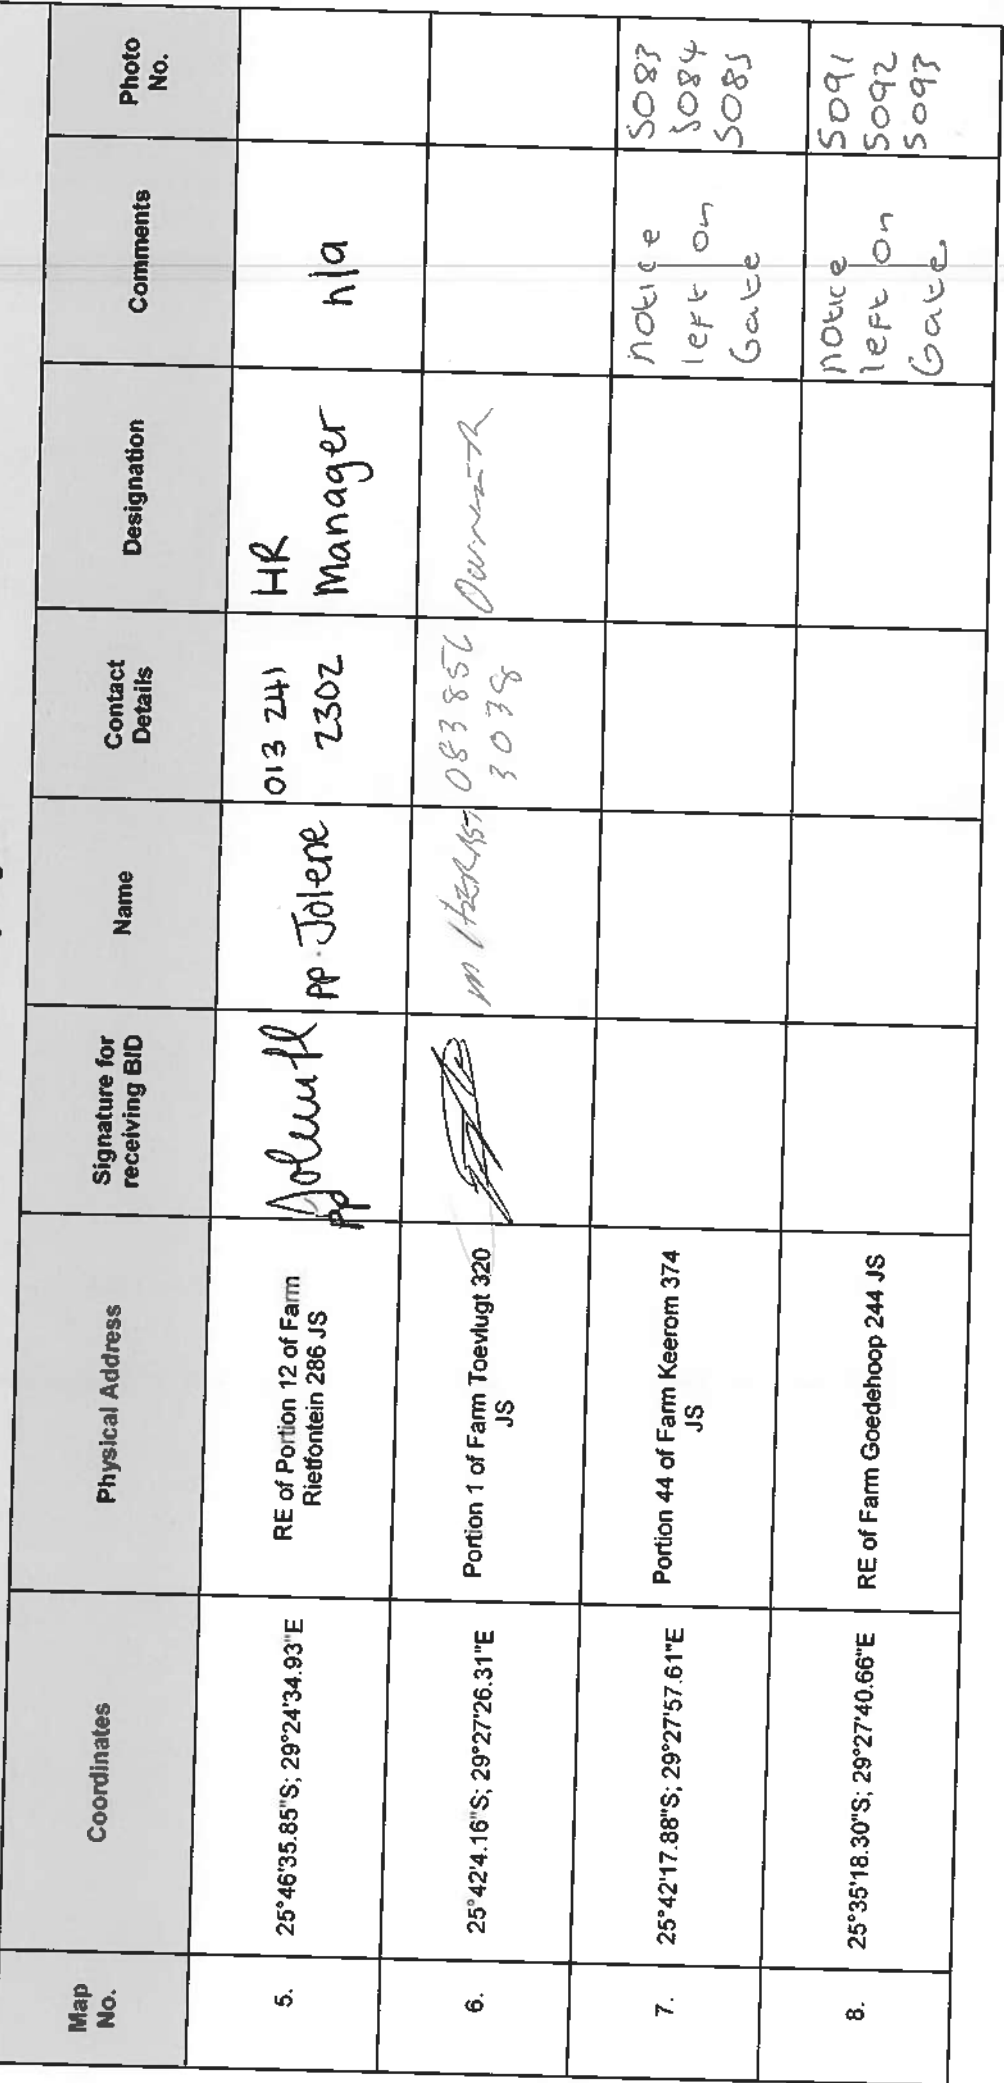 Map No.
Coordinates
Physical Address
Signature for receiving BID
Name
Contact Details
Designation
Comments
Photo No.
5.
25°46'35.85"S; 29°24'34.93"E
RE of Portion 12 of Farm
Rietfontein 286 JS
pp
pp. Jolene
013 241
2302
HR
Manager
n/a
6.
25°42'4.16"S; 29°27'26.31"E
Portion 1 of Farm Toevlugt 320
JS
083 856
3038
7.
25°42'17.88"S; 29°27'57.61"E
Portion 44 of Farm Keerom 374
JS
notice
left on
Gate
5083
5084
5085
8.
25°35'18.30"S; 29°27'40.66"E
RE of Farm Goedehoop 244 JS
notice
left on
Gate
5091
5092
5093